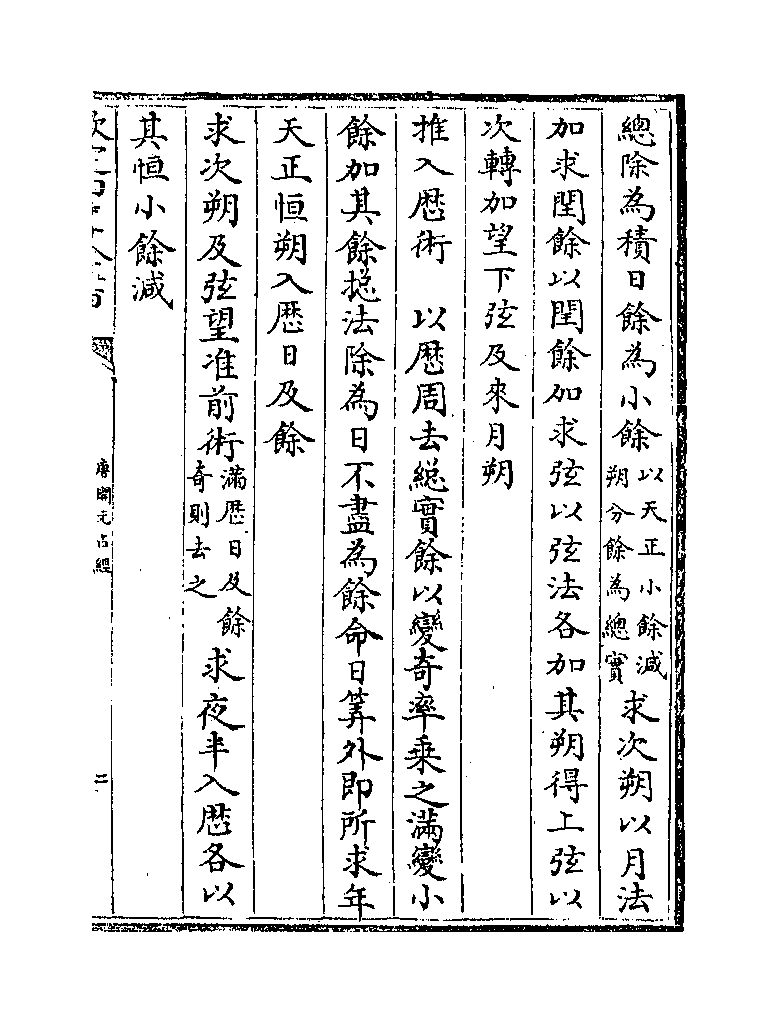 總除為積日餘為小餘以天正小餘減朔分餘為總實求次朔以月法
加求閏餘以閏餘加求弦以弦法各加其朔得上弦以
次轉加望下弦及來月朔
推入厯術　以厯周去総實餘以變奇率乗之滿變小
餘加其餘揔法除為日不盡為餘命日筭外即所求年
天正恒朔入厯日及餘
求次朔及弦望准前術滿厯日及餘奇則去之求夜半入厯各以
其恒小餘減
唐開元占經
二